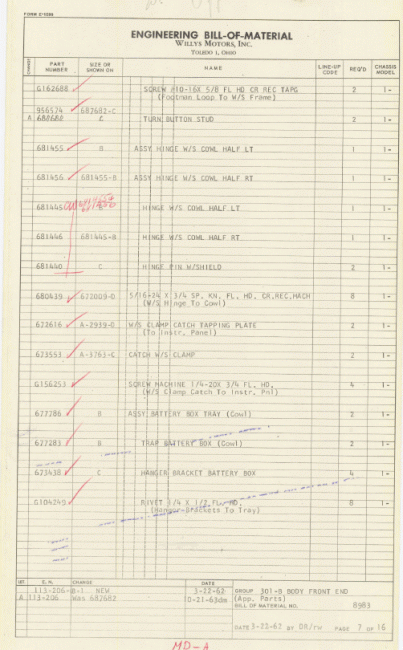 FORM E-1088
ENGINEERING BILL-OF-MATERIAL
WILLYS MOTORS, INC.
TOLEDO 1, OHIO
CHANGE PART NUMBER SIZE OR SHOWN ON NAME LINE-UP CODE REQ'D CHASSIS MODEL
G162688 SCREW #10-16X 5/8 FL HD CR REC TAPG 2 1-
(Footman Loop To W/S Frame)
956574 687682-C
A 688682 C TURN BUTTON STUD 2 1-
681455 B ASSY HINGE W/S COWL HALF LT 1 1-
681456 681455-B ASSY HINGE W/S COWL HALF RT 1 1-
681445 HINGE W/S COWL HALF LT 1-
681446 681445-B HINGE W/S COWL HALF RT 1 1-
681440 C HINGE PIN W/SHIELD 2 1-
680439 672009-D 5/16-24 X 3/4 SP. KN. FL. HD. CR.REC.MACH 8 1-
(W/S Hinge To Cowl)
622616 A-2939-D W/S CLAMP CATCH TAPPING PLATE 2 1-
(To Instr. Panel)
673553 A-3763-C CATCH W/S CLAMP 2 1-
G156253 SCREW MACHINE 1/4-20X 3/4 FL. HD. 4 1-
(W/S Clamp Catch To Instr. Pnl)
677286 B ASSY BATTERY BOX TRAY (Cowl) 2 1-
677283 B TRAP BATTERY BOX (Cowl) 2 1-
673438 C HANGER BRACKET BATTERY BOX 4 1-
G104249 RIVET 1/4 X 1/2 FL. HD. 8 1-
(Hanger Brackets To Tray)
LET. C.N. CHANGE DATE
113-206-B-1 NEW 3-22-62 GROUP 301-B BODY FRONT END
A 113-206 Was 687682 10-21-63dm (App. Parts)
BILL OF MATERIAL NO. 8983
DATE 3-22-62 BY DR/rw PAGE 7 OF 16
MD-A